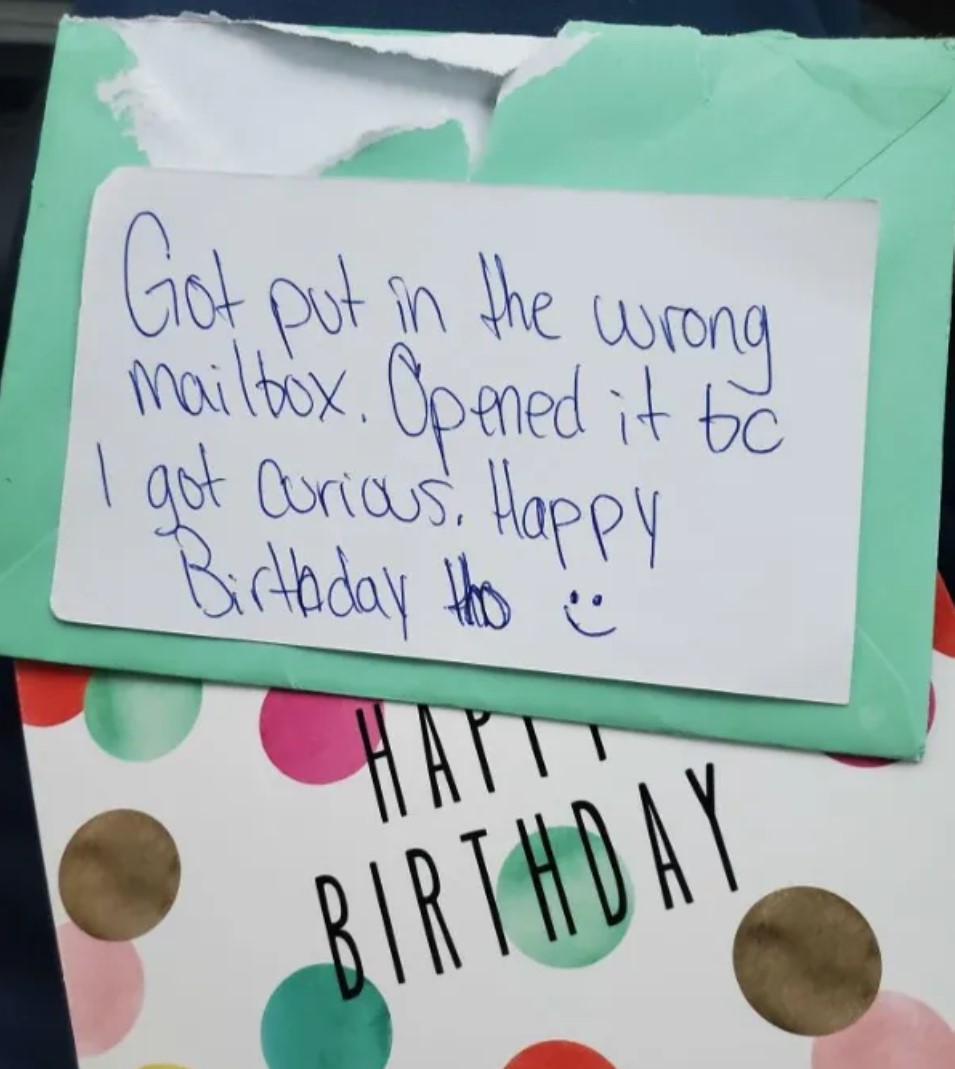 Got put in the wrong
mailbox. Opened it bc
I got curious. Happy
Birthday tho :)
HAPPY
BIRTHDAY